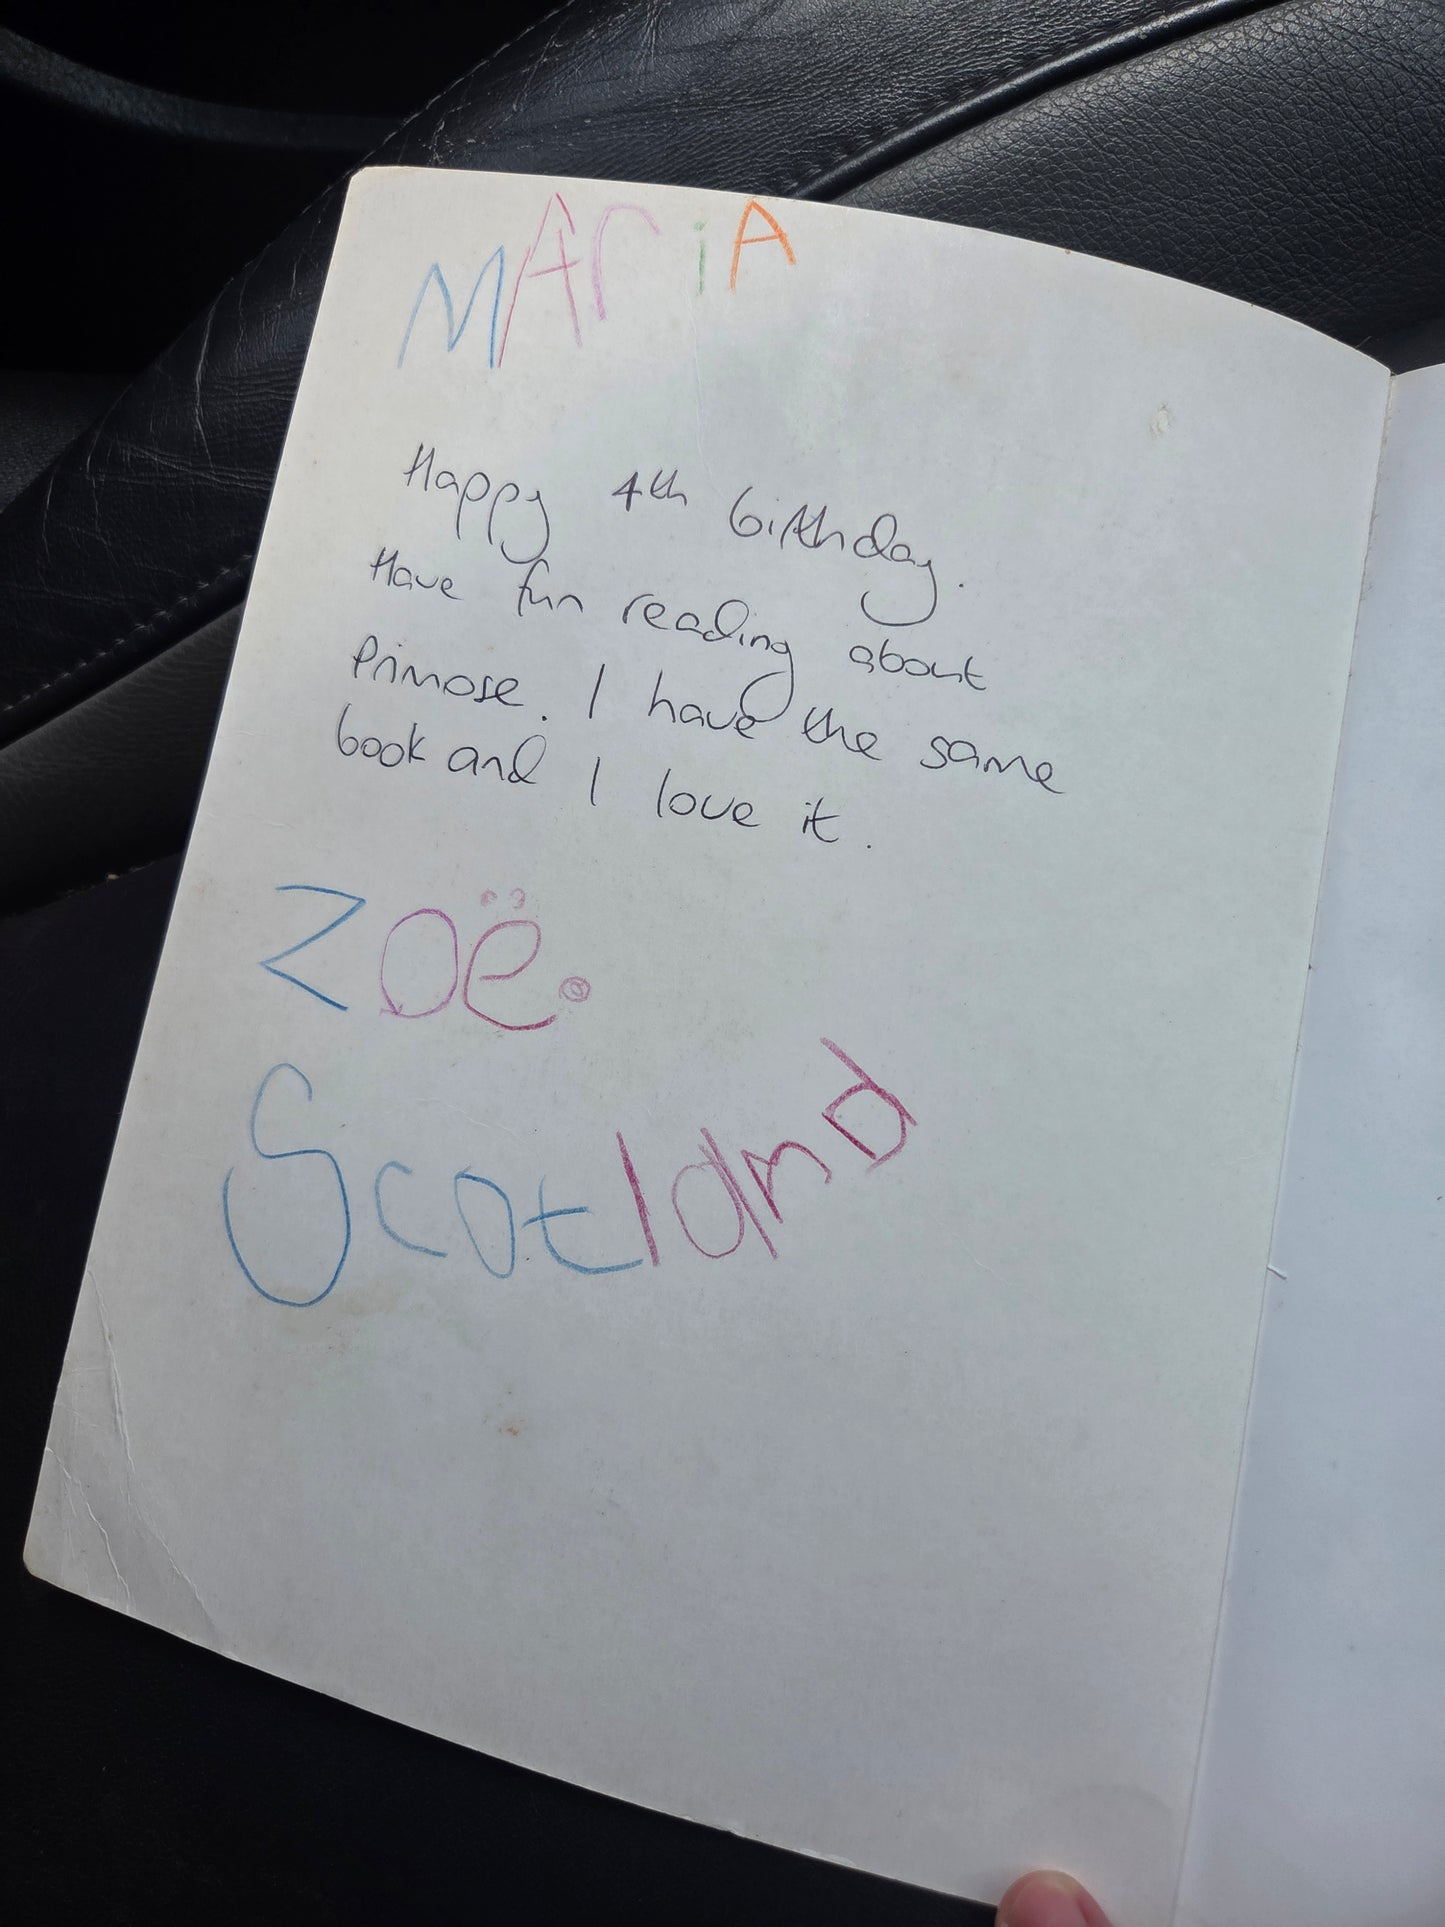 MAriA
Happy 4th birthday.
Have fun reading about
Primose. I have the same
book and I love it.
Zoë.
Scotland